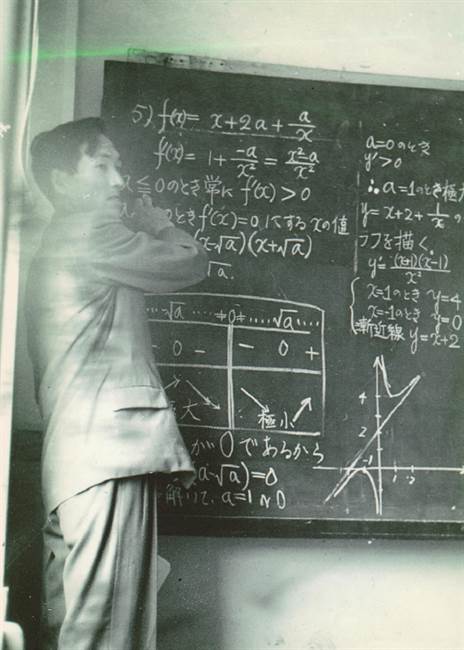 5) f(x)= x+2a+a/x
f'(x)= 1+ -a/x² = x²-a/x²
≦0のとき常に f'(x)>0
のときf'(x)=0にするxの値
(x-√a)(x+√a)
√a.
…… √a …… 0 …… √a ……
- 0 - - 0 +
極大 極小
が0であるから
(a-√a)=0
解いて、a=1, 0
a=0のとき
y'>0
∴a=1のとき極
y=x+2+1/x の
ラフを描く,
y'=(x+1)(x-1)/x²
x=1のとき y=4
x=-1のとき y=0
漸近線 y=x+2
4
2
-1